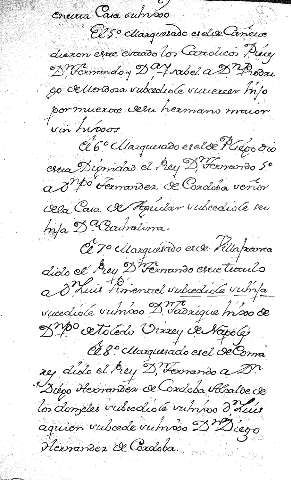 en una Casa su hixo
El 5º Marquesado es el de Cañete
dieron este estado los Catolicos Reyes
Dn. Fernando y Dª Ysabel a Dn. Rodri
go de Mendosa subcediole su tercer hijo
por muerte de su hermano maior
sin hixos
El 6º Marquesado es el de Pliego dio
esta Dignidad el Rey Dn. Fernando 5º
a Dn. Pº Fernandez de Cordoba señor
de la Casa de Aguilar subcediole su
hija Dª Cathalina.
El 7º Marquesado es de Villafranca
diole el Rey Dn. Fernando este titulo
a Dn. Luis Pimentel subcediole su hija
sucediole su hixo Dn. Fadrique hixo de
Dn. Pº de Toledo Virrey de Napoles
El 8º Marquesado es el de Coma
rey diole el Rey Dn. Fernando a Dn.
Diego Hernandez de Cordoba Alcalde de
los donseles subcediole su hixo Dn. Luis
a quien subcede su hixo Dn. Diego
Hernandez de Cordoba.